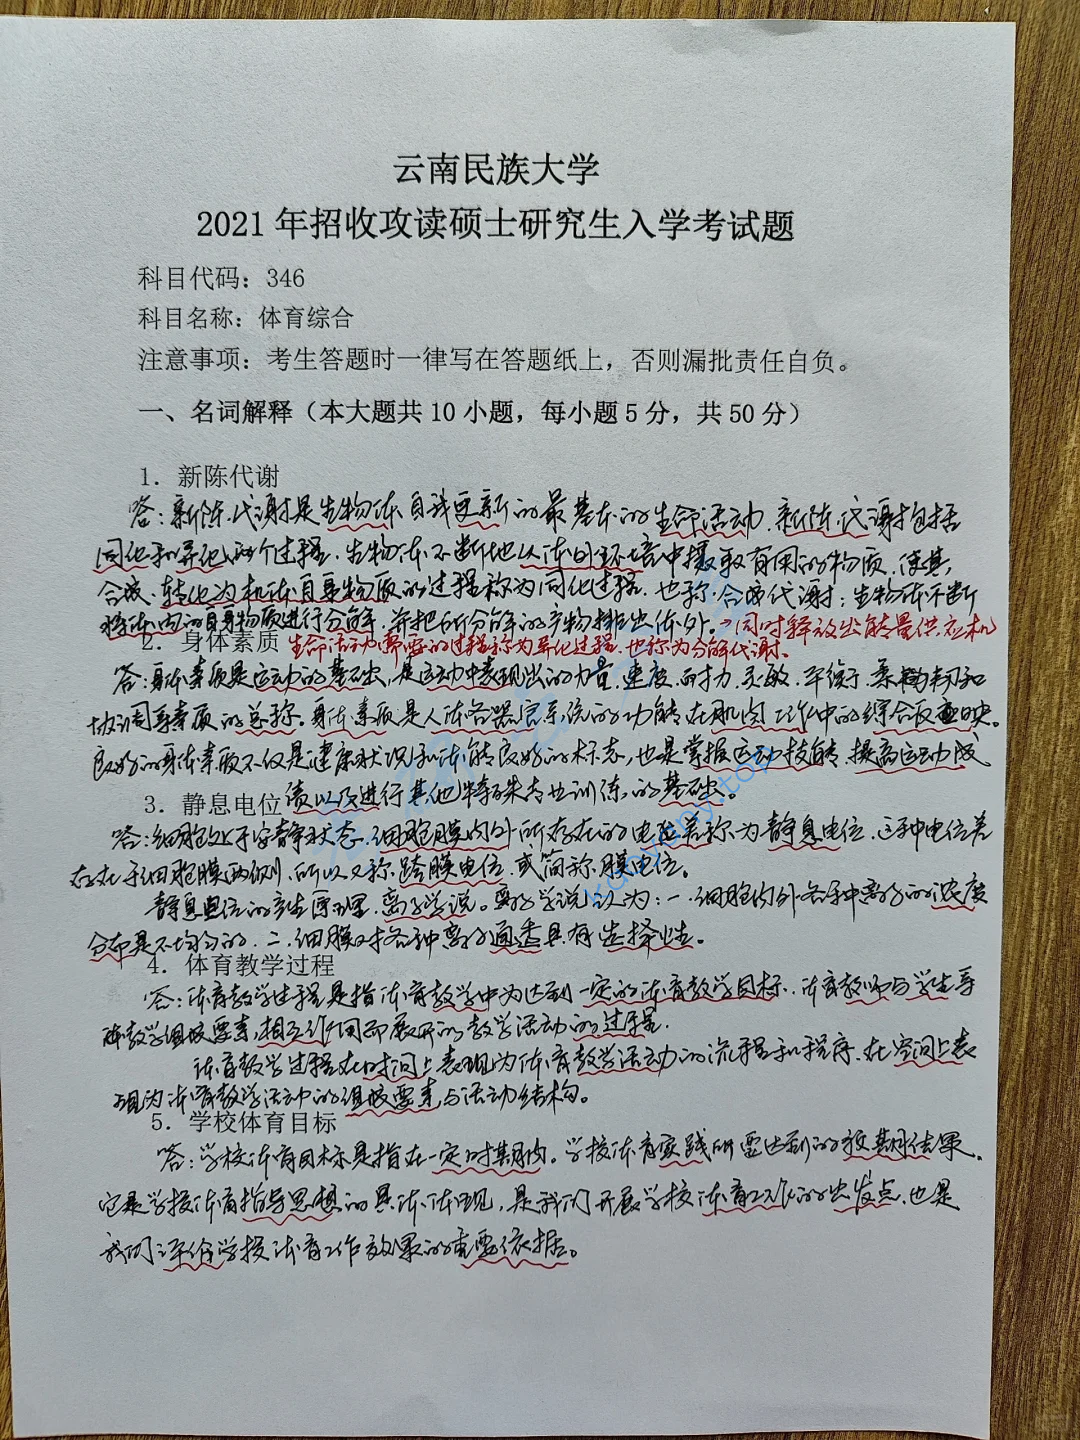 云南民族大学
2021 年招收攻读硕士研究生入学考试题
科目代码：346
科目名称：体育综合
注意事项：考生答题时一律写在答题纸上，否则漏批责任自负。
一、名词解释（本大题共 10 小题，每小题 5 分，共 50 分）
1. 新陈代谢
答：新陈代谢是生物体自我更新的最基本的生命活动，新陈代谢包括
同化和异化两个过程，生物体不断地从体外环境中摄取有用的物质，使其
合成、转化为机体自身物质的过程称为同化过程，也称合成代谢；生物体不断
将体内的自身物质进行分解，并把所分解的产物排出体外。→同时释放出能量供应机
2. 身体素质 生命活动需要的过程称为异化过程，也称为分解代谢。
答：身体素质是运动的基础，是运动中表现出的力量、速度、耐力、灵敏、平衡、柔韧和
协调等素质的总称。身体素质是人体各器官系统的功能在肌肉工作中的综合反映。
良好的身体素质不仅是健康状况和体能良好的标志，也是掌握运动技能、提高运动成
3. 静息电位 绩以及进行其他特殊专业训练的基础。
答：细胞处于安静状态，细胞膜内外所存在的电位差称为静息电位，这种电位差
存在于细胞膜两侧，所以又称跨膜电位，或简称膜电位。
静息电位的产生原理：离子学说。离子学说认为：一.细胞内外各种离子的浓度
分布是不均匀的，二.细膜对各种离子通透具有选择性。
4. 体育教学过程
答：体育教学过程是指体育教学中为达到一定的体育教学目标，体育教师与学生等
教学组成要素，相互作用而展开的教学活动的过程.
体育教学过程在时间上表现为体育教学活动的流程和程序，在空间上表
现为体育教学活动的组成要素与活动结构。
5. 学校体育目标
答：学校体育目标是指在一定时期内，学校体育实践所要达到的预期结果。
它是学校体育指导思想的具体体现，是我们开展学校体育工作的出发点，也是
我们评价学校体育工作效果的重要依据。